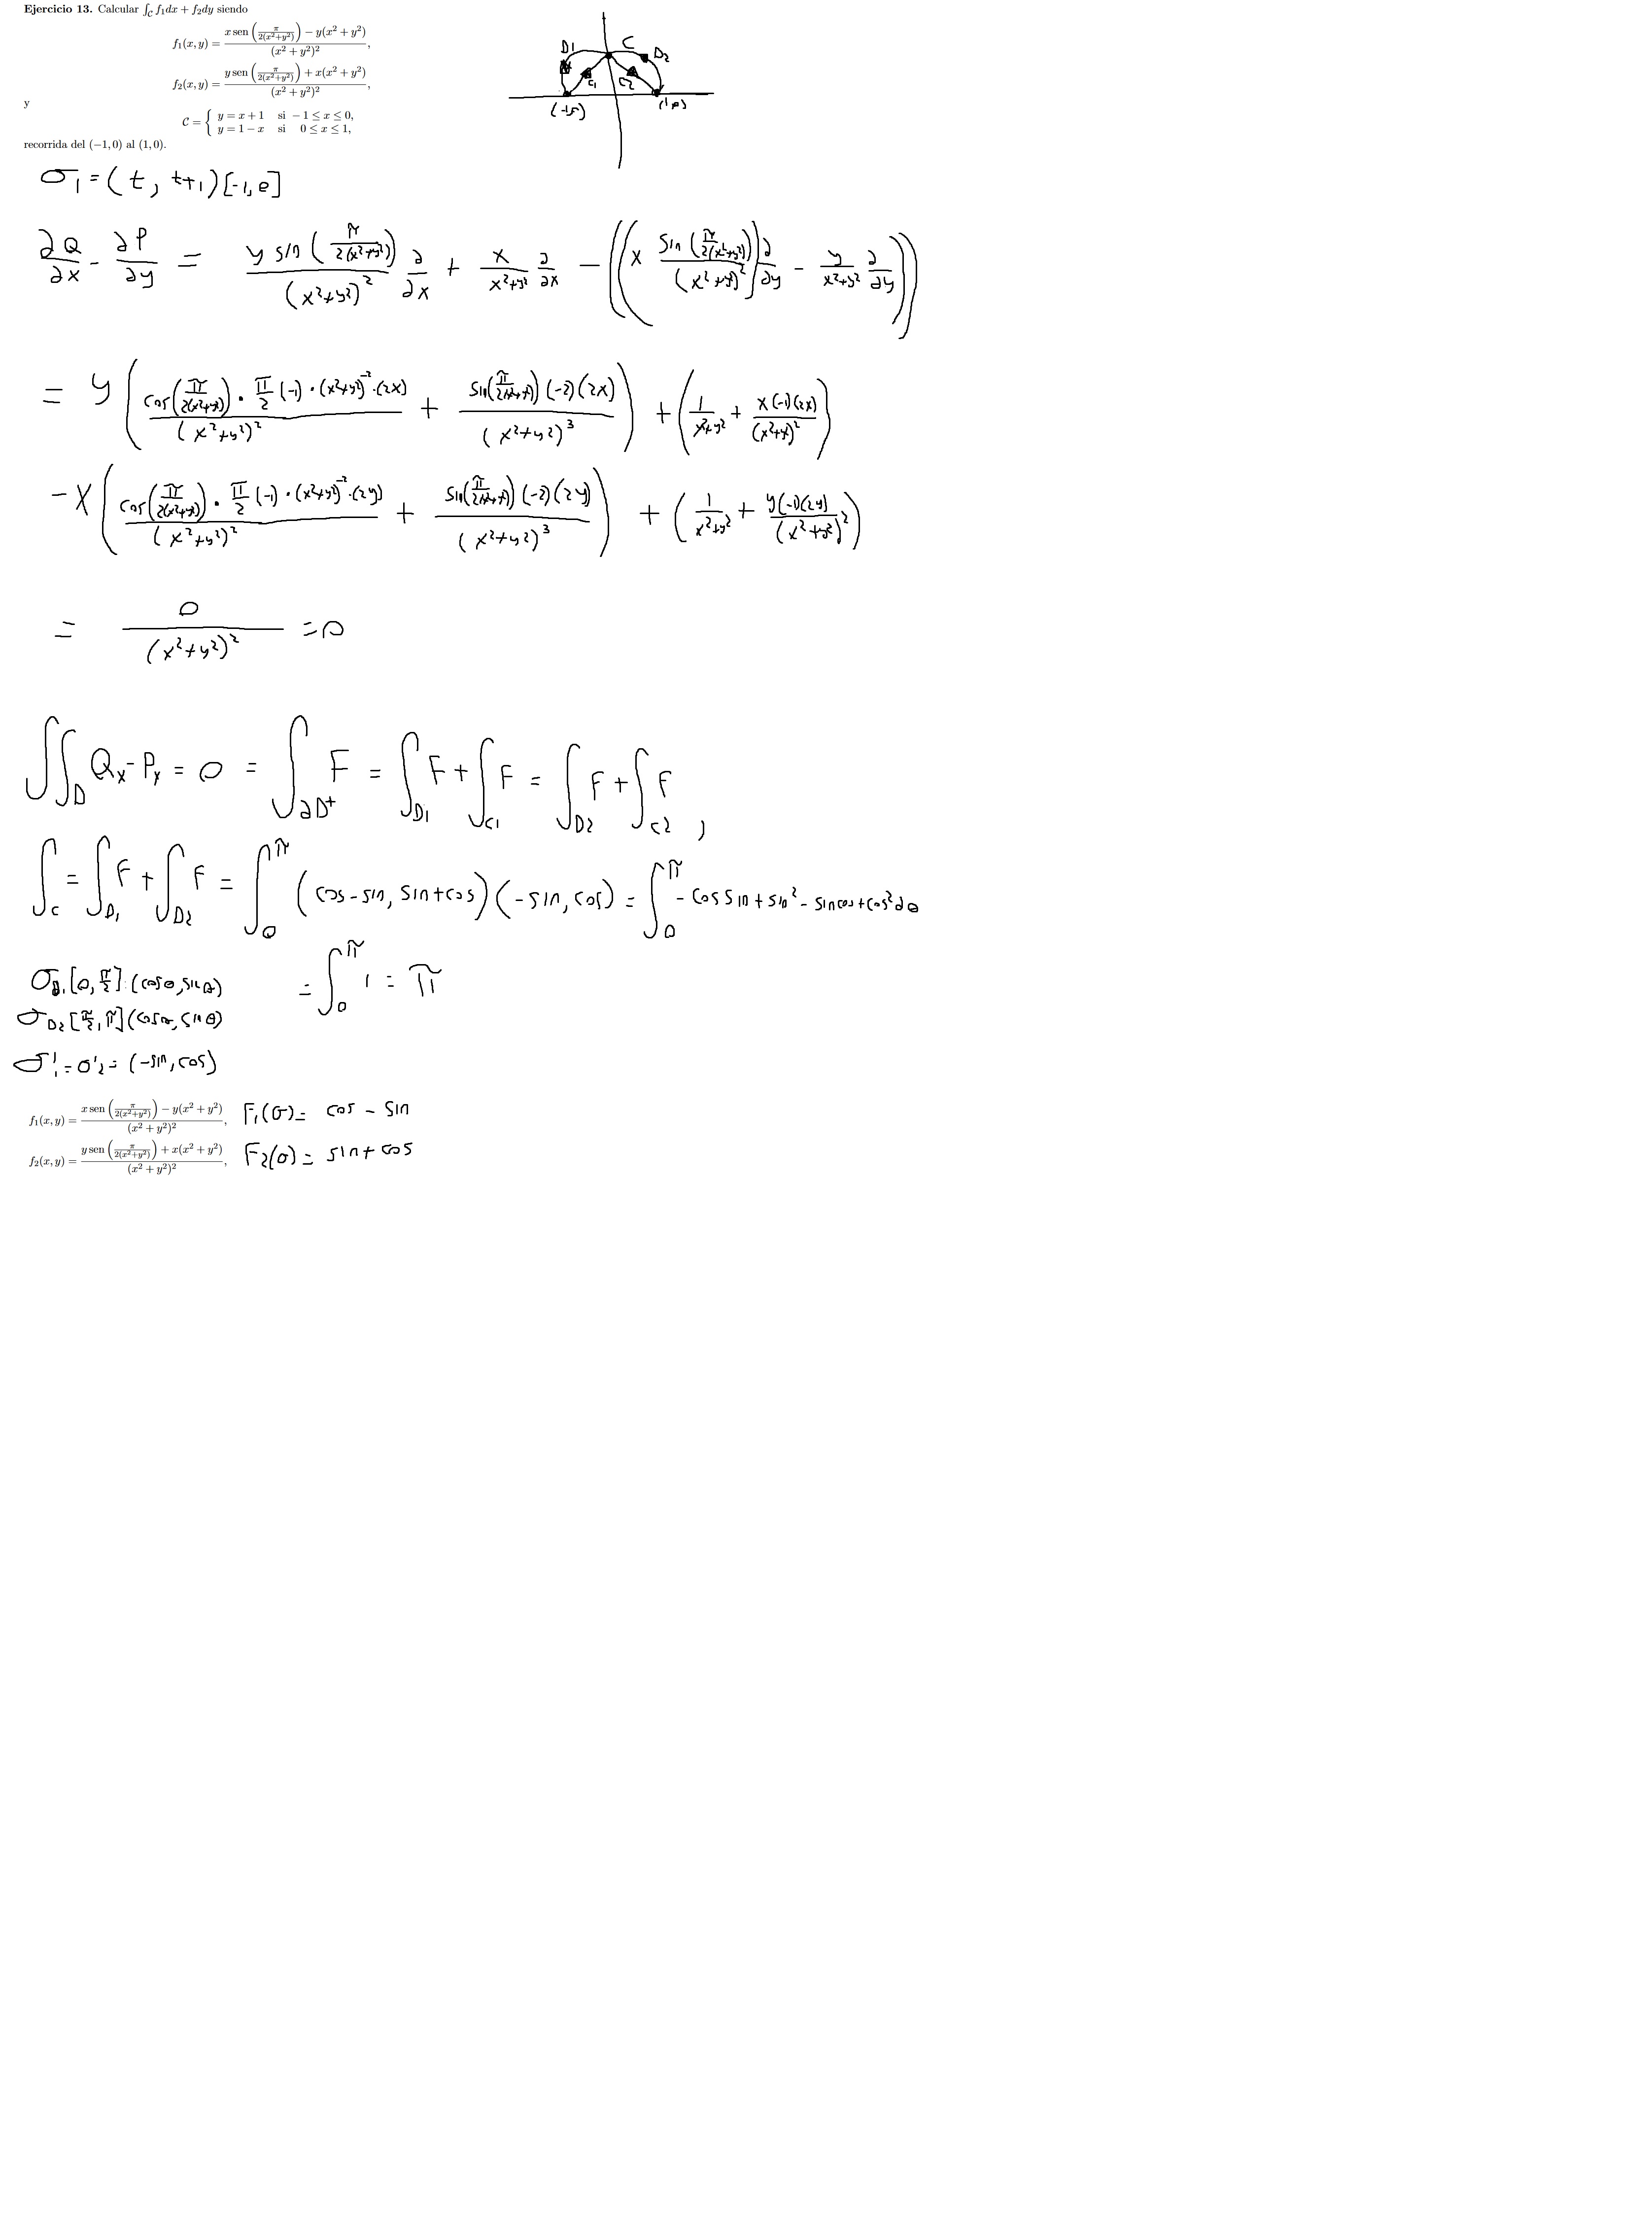 Ejercicio 13. Calcular ∫_C f₁dx + f₂dy siendo
f₁(x, y) = (x sen (π/(2(x²+y²))) − y(x² + y²))/(x² + y²)²,
f₂(x, y) = (y sen (π/(2(x²+y²))) + x(x² + y²))/(x² + y²)²,
y
C = { y = x + 1 si −1 ≤ x ≤ 0,
y = 1 − x si 0 ≤ x ≤ 1,
recorrida del (−1, 0) al (1, 0).
D1 C D2
C1 C2
(-1,0) (1,0)
σ₁ = (t, t+1) [-1, 0]
∂Q/∂x - ∂P/∂y = (y sin (π/(2(x²+y²))))/(x²+y²)² ∂/∂x + x/(x²+y²) ∂/∂x - ((x (sin (π/(2(x²+y²))))/(x²+y²)²) ∂/∂y - y/(x²+y²) ∂/∂y))
= y ((cos(π/(2(x²+y²))) · π/2 (-1) · (x²+y²)⁻² · (2x))/(x²+y²)² + (sin(π/(2(x²+y²))) (-2)(2x))/(x²+y²)³) + (1/(x²+y²) + (x(-1)(2x))/(x²+y²)²)
- x ((cos(π/(2(x²+y²))) · π/2 (-1) · (x²+y²)⁻² · (2y))/(x²+y²)² + (sin(π/(2(x²+y²))) (-2)(2y))/(x²+y²)³) + (1/(x²+y²) + (y(-1)(2y))/(x²+y²)²)
= 0/(x²+y²)² = 0
∫∫_D Qx - Py = 0 = ∫_∂D⁺ F = ∫_D1 F + ∫_C1 F = ∫_D2 F + ∫_C2 F ,
∫_C = ∫_D1 F + ∫_D2 F = ∫_0^π (cos - sin, sin + cos)(-sin, cos) = ∫_0^π - cos sin + sin² - sin cos + cos² dθ
= ∫_0^π 1 = π
σ_D1 [0, π/2] : (cosθ, sinθ)
σ_D2 [π/2, π] (cosθ, sinθ)
σ'₁ = σ'₂ = (-sin, cos)
f₁(x, y) = (x sen (π/(2(x²+y²))) − y(x² + y²))/(x² + y²)², F₁(σ) = cos - sin
f₂(x, y) = (y sen (π/(2(x²+y²))) + x(x² + y²))/(x² + y²)², F₂(σ) = sin + cos